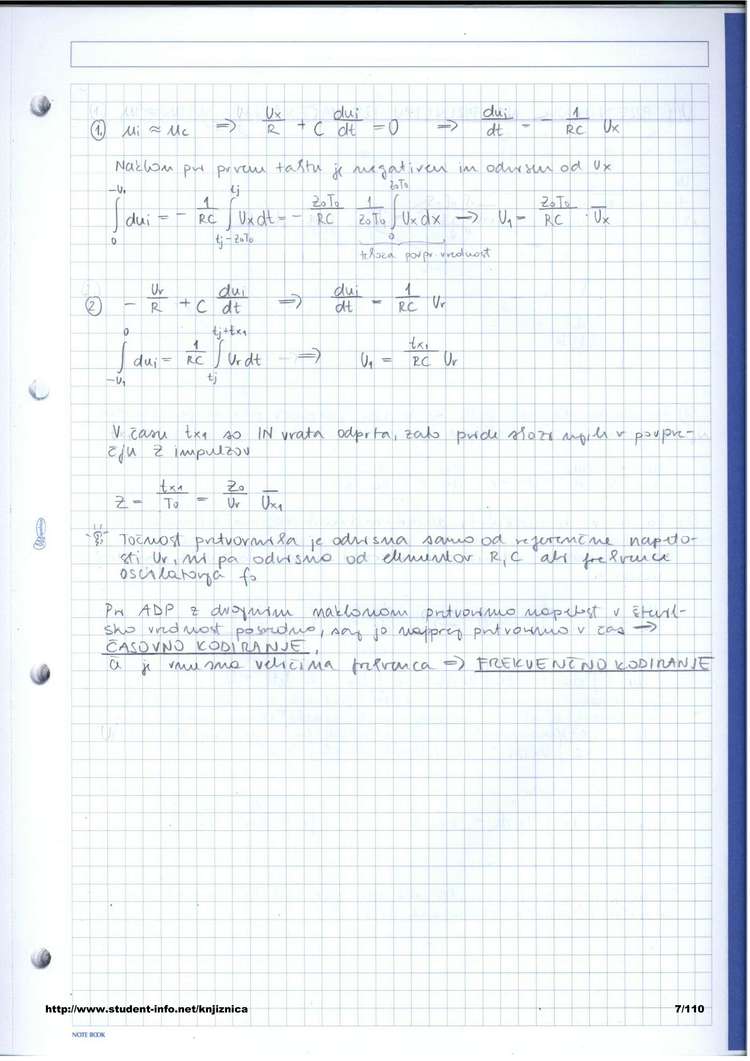 ① ui ≈ uc => Ux/R + C dui/dt = 0 => dui/dt = - 1/RC Ux
Naklon pri prvem taktu je negativen in odvisen od Ux
∫_0^{-U1} dui = - 1/RC ∫_{tj-Z0T0}^{tj} Ux dt = - Z0T0/RC 1/Z0T0 ∫_0^{Z0T0} Ux dx → U1 = Z0T0/RC · U̅x
tekoča povpr. vrednost
② - Ur/R + C dui/dt => dui/dt = 1/RC Ur
∫_{-U1}^0 dui = 1/RC ∫_{tj}^{tj+tx1} Ur dt => U1 = tx1/RC Ur
V času tx1 so IN vrata odprta, zato pride skozi njih v povpre-
čju Z impulzov
Z = tx1/T0 = Z0/Ur U̅x1
Točnost pretvornika je odvisna samo od referenčne napeto-
sti Ur, ni pa odvisno od elementov R, C ali frekvence
oscilatorja f0
Pri ADP z dvojnim naklonom pretvorimo napetost v števil-
sko vrednost posredno, saj jo najprej pretvorimo v čas →
ČASOVNO KODIRANJE,
če je vmesna veličina frekvenca => FREKVENČNO KODIRANJE
http://www.student-info.net/knjiznica 7/110
NOTE BOOK